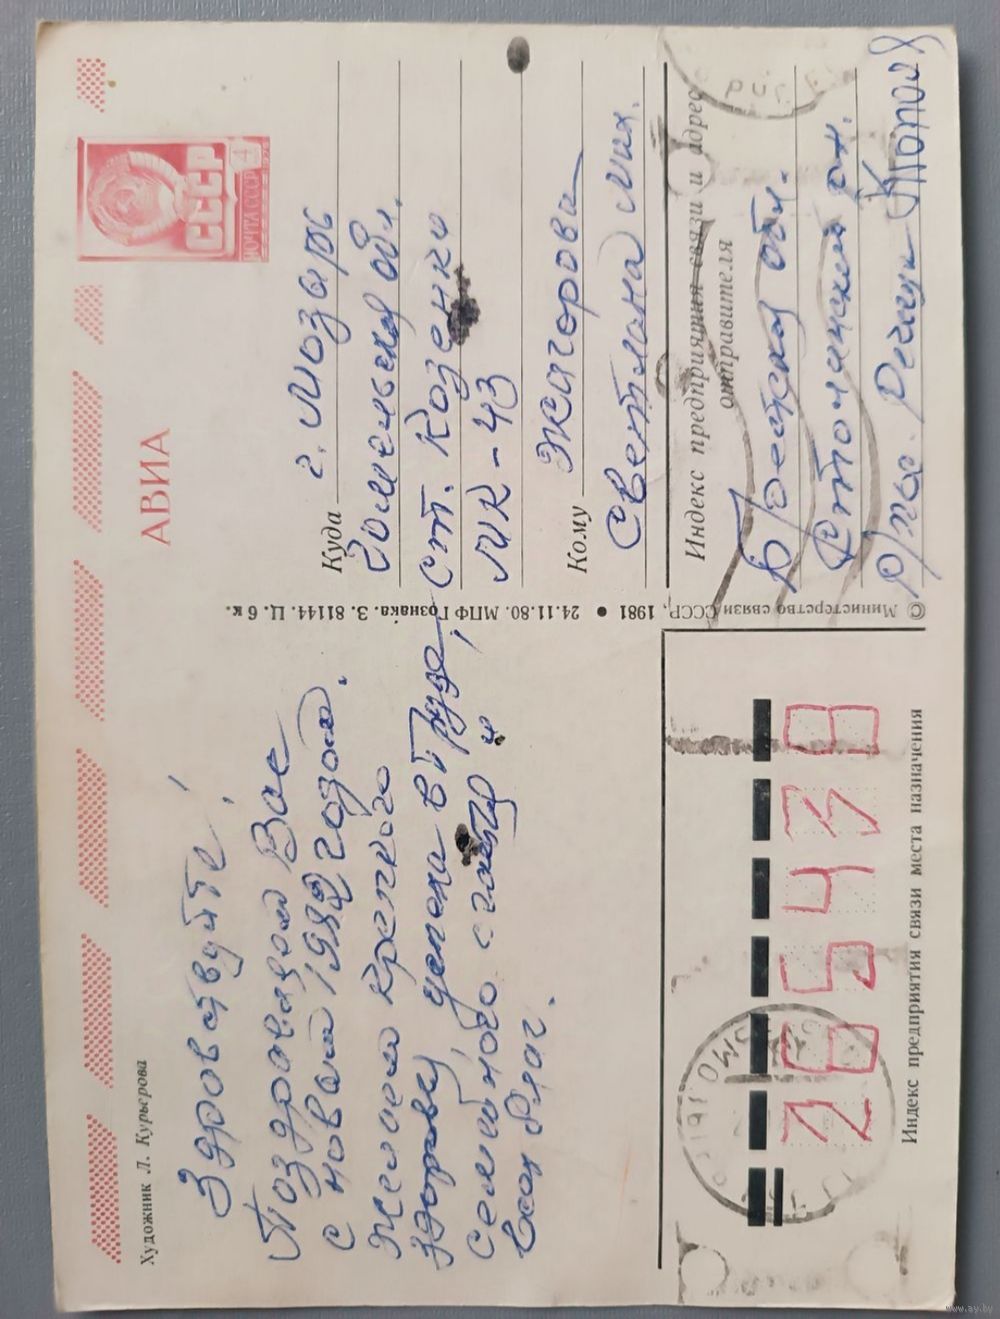 Художник Л. Курьерова
АВИА
СССР
ПОЧТА СССР 4
Здравствуйте!
Поздравляем Вас
с новым 1982 годом.
Желаем крепкого
здоровья, успеха в труде,
семейного счастья и
всех благ.
© Министерство связи СССР, 1981 ● 24.11.80. МПФ Гознака. З. 81144. Ц. 6 к.
Куда г. Мозырь
Гомельская обл.
ст. Козенки
МК-43
Кому Жигорова
Светлана Мих.
Индекс предприятия связи и адрес
отправителя
Брестская обл.
Столинский р-н.
Речица
Индекс предприятия связи места назначения
www.ay.by